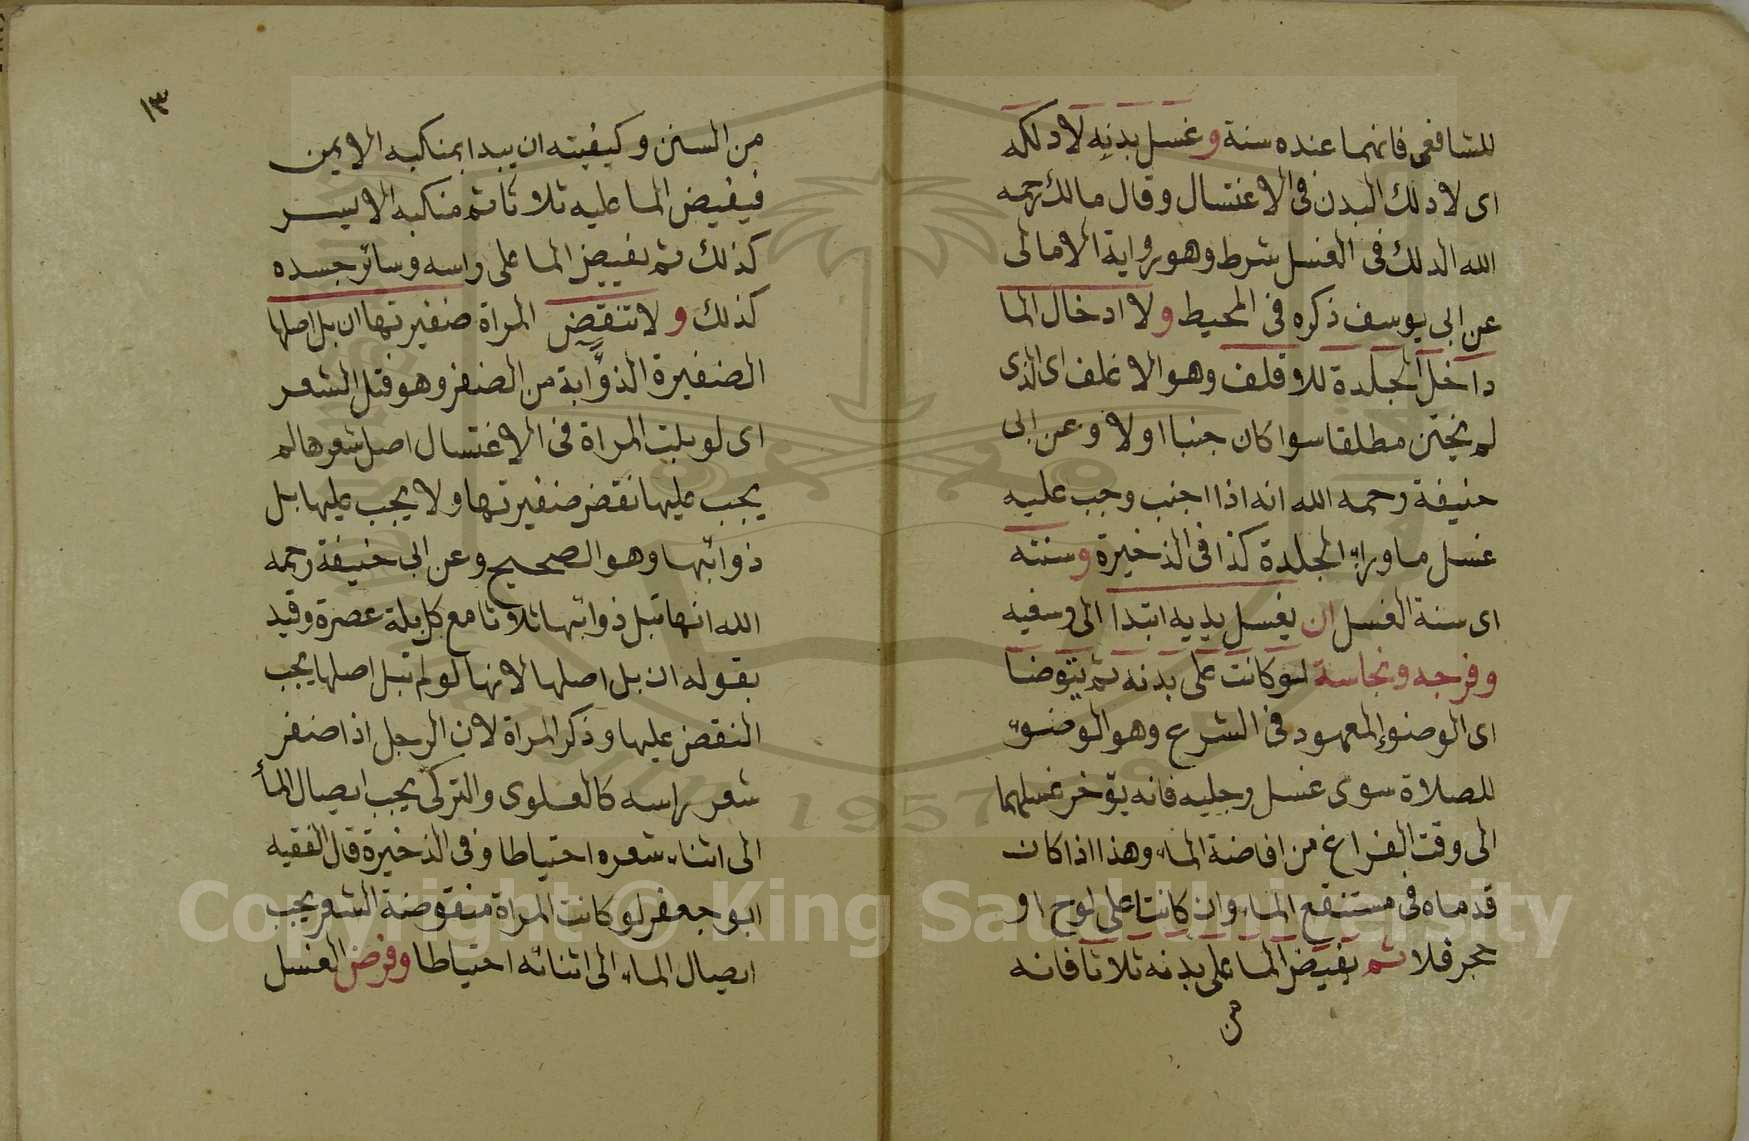 للشافعى فانهما عنده سنة و غسل بدنه لا دلكه
اى لا دلك البدن فى الاغتسال وقال مالك رحمه
الله الدلك فى الغسل شرط وهو رواية الامالى
عن ابى يوسف ذكره فى المحيط و لا ادخال الما
داخل الجلدة للاقلف وهو الاغلف اى الذى
لم يختن مطلقا سوا كان جنبا اولا وعن ابى
حنيفة رحمه الله انه اذا اجنب وجب عليه
غسل ما وراء الجلدة كذا فى الذخيرة و سنته
اى سنة الغسل ان يغسل يديه ابتدا الى رسغيه
و فرجه و نجاسة لو كانت على بدنه ثم يتوضا
اى الوضوء المعهود فى الشرع وهو الوضوء
للصلاة سوى غسل رجليه فانه يؤخر غسلهما
الى وقت الفراغ من افاضة الماء وهذا اذا كان
قدماه فى مستنقع الماء وان كانتا على لوح او
حجر فلا ثم يفيض الما على بدنه ثلاثا فانه
من
١٣
من السنن وكيفيته ان يبدا بمنكبه الايمن
فيفيض الما عليه ثلاثا ثم منكبه الايسر
كذلك ثم يفيض الما على راسه وسائر جسده
كذلك و لا تنقض المراة ضفيرتها ان بل اصلها
الضفيرة الذؤابة من الضفر وهو فتل الشعر
اى لو بلت المراة فى الاغتسال اصل شعرها لم
يجب عليها نقض ضفيرتها ولا يجب عليها بل
ذوائبها وهو الصحيح وعن ابى حنيفة رحمه
الله انها تبل ذوائبها ثلاثا مع كل بلة عصرة وقيد
بقوله ان بل اصلها لانها لو لم تبل اصلها يجب
النقض عليها وذكر المراة لان الرجل اذا ضفر
شعر راسه كالعلوى والتركى يجب ايصال الماء
الى اثناء شعره احتياطا وفى الذخيرة قال الفقيه
ابو جعفر لو كانت المراة منقوضة الشعر يجب
ايصال الماء الى اثنائه احتياطا و فرض الغسل
1957
Copyright © King Saud University